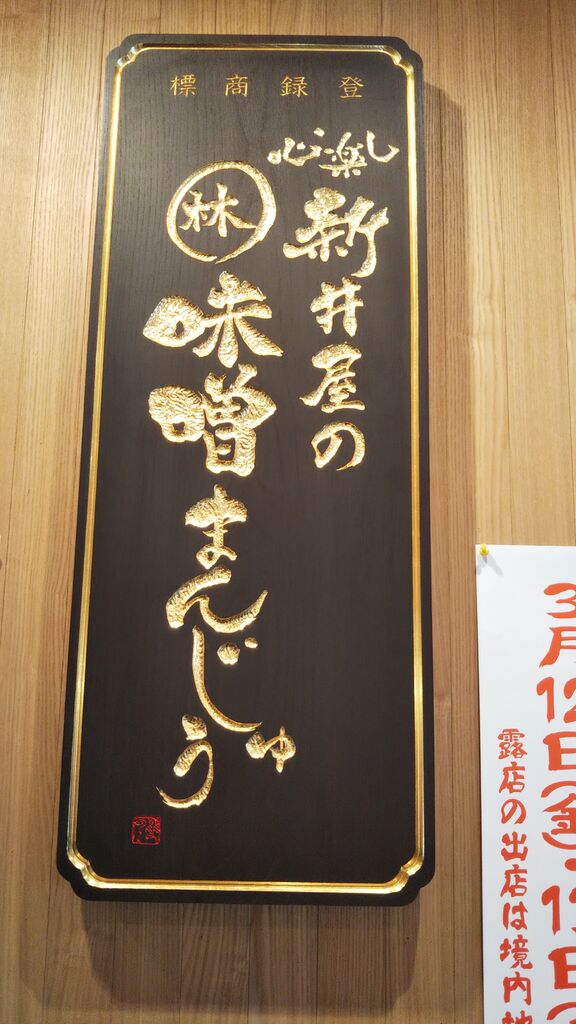 登録商標
心楽し
新井屋の
林
味噌まんじゅう
3月12日(金)・1
露店の出店は境内